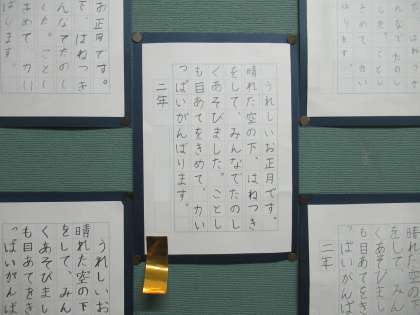 お正月です。
、はねつき
んなでたのし
した。ことし
きめて、力い
ばります
はねつき
なでたのし
。ことし
て、力い
ります
うれしいお正月です。
晴れた空の下、はねつき
をして、みんなでたのし
くあそびました。ことし
も目あてをきめて、力い
っぱいがんばります。
二年
うれしいお
晴れた空の下
をして、みん
くあそびま
も目あてをき
っぱいがんば
晴れた空の
をして、みん
くあそびま
も目あてを
っぱいがんば
二年